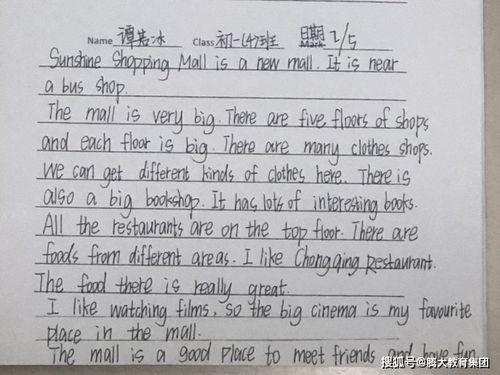 Name 谭若冰 Class 初一(4)班 日期 Mark 2/5
Sunshine Shopping Mall is a new mall. It is near
a bus shop.
The mall is very big. There are five floors of shops
and each floor is big. There are many clothes shops.
We can get different kinds of clothes here. There is
also a big bookshop. It has lots of interesting books.
All the restaurants are on the top floor. There are
foods from different areas. I like Chongqing Restaurant.
The food there is really great.
I like watching films, so the big cinema is my favourite
place in the mall.
The mall is a good place to meet friends and have fun
搜狐号@腾大教育集团